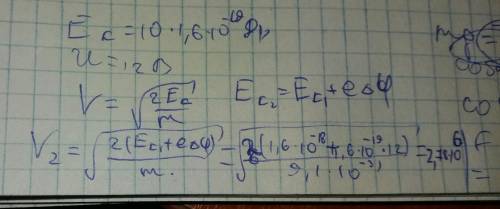 E_c = 10 · 1,6 · 10^-19 Дж
U = 12 В
V = √(2E_c / m)   E_c₂ = E_c₁ + eΔφ
V₂ = √(2(E_c₁ + eΔφ) / m.) = √(2(1,6 · 10^-18 + 1,6 · 10^-19 · 12) / 9,1 · 10^-31) = 2,78·10^6